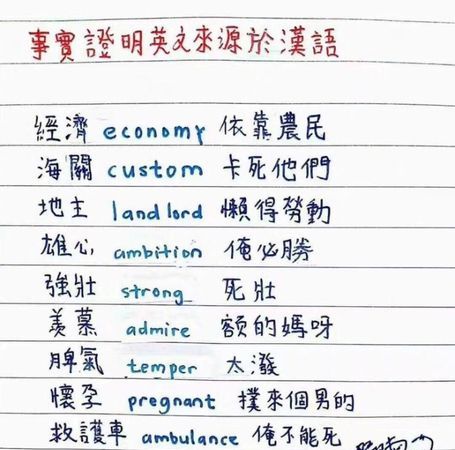 事實證明英文來源於漢語
經濟 economy 依靠農民
海關 custom 卡死他們
地主 landlord 懶得勞動
雄心 ambition 俺必勝
強壯 strong 死壯
羨慕 admire 額的媽呀
脾氣 temper 太潑
懷孕 pregnant 撲來個男的
救護車 ambulance 俺不能死